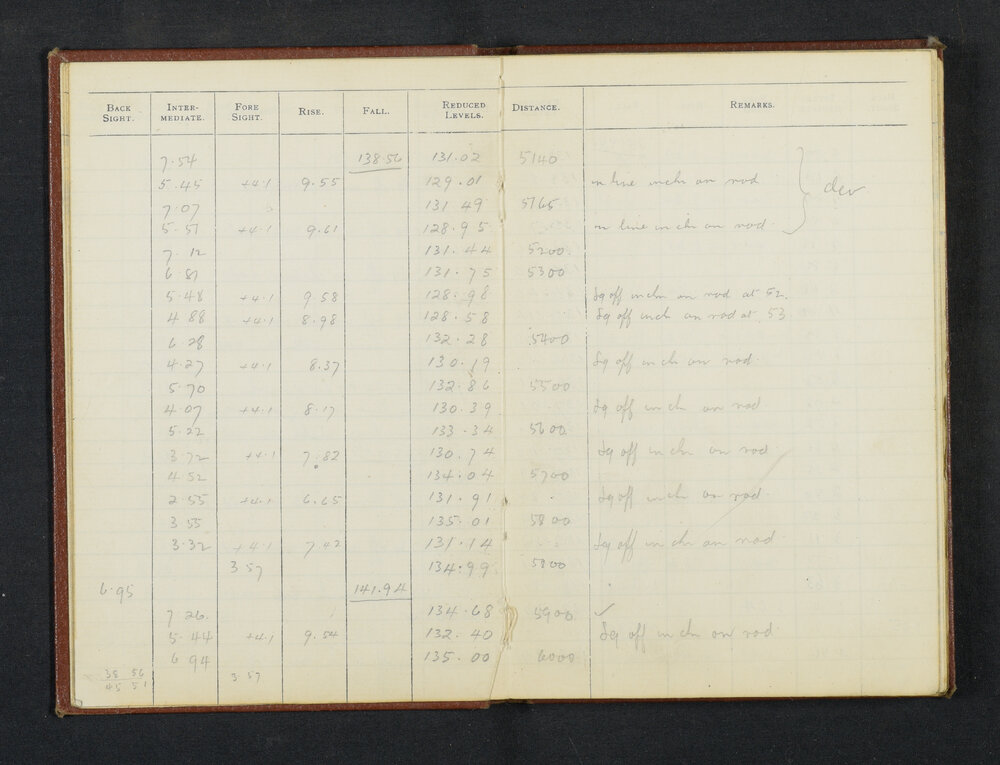 BACK SIGHT. INTER-MEDIATE. FORE SIGHT. RISE. FALL. REDUCED LEVELS. DISTANCE. REMARKS.
7.54 138.56 131.02 5140
5.45 +4.1 9.55 129.01 in line in ch on rod
7.07 131 49 5165 } dev
5.51 +4.1 9.61 128.95 in line in ch on rod
7.12 131.44 5200
6.81 131.75 5300
5.48 +4.1 9.58 128.98 sq off in ch on rod at 52.
4 88 +4.1 8.98 128.58 sq off in ch on rod at 53
6.28 132.28 5400
4.27 +4.1 8.37 130.19 sq off in ch on rod
5.70 132.86 5500
4.07 +4.1 8.17 130.39 sq off in ch on rod
5.22 133.34 5600
3.72 +4.1 7.82 130.74 sq off in ch on rod
4 52 134.04 5700
2.55 +4.1 6.65 131.91 sq off in ch on rod
3 55 135.01 5800
3.32 +4.1 7.42 131.14 sq off in ch on rod
3 57 134.99 5900
6.95 141.94
7.26 134.68 5900 ✓
5.44 +4.1 9.54 132.40 sq off in ch on rod
6 94 135.00 6000
38 56 3 57
45 51